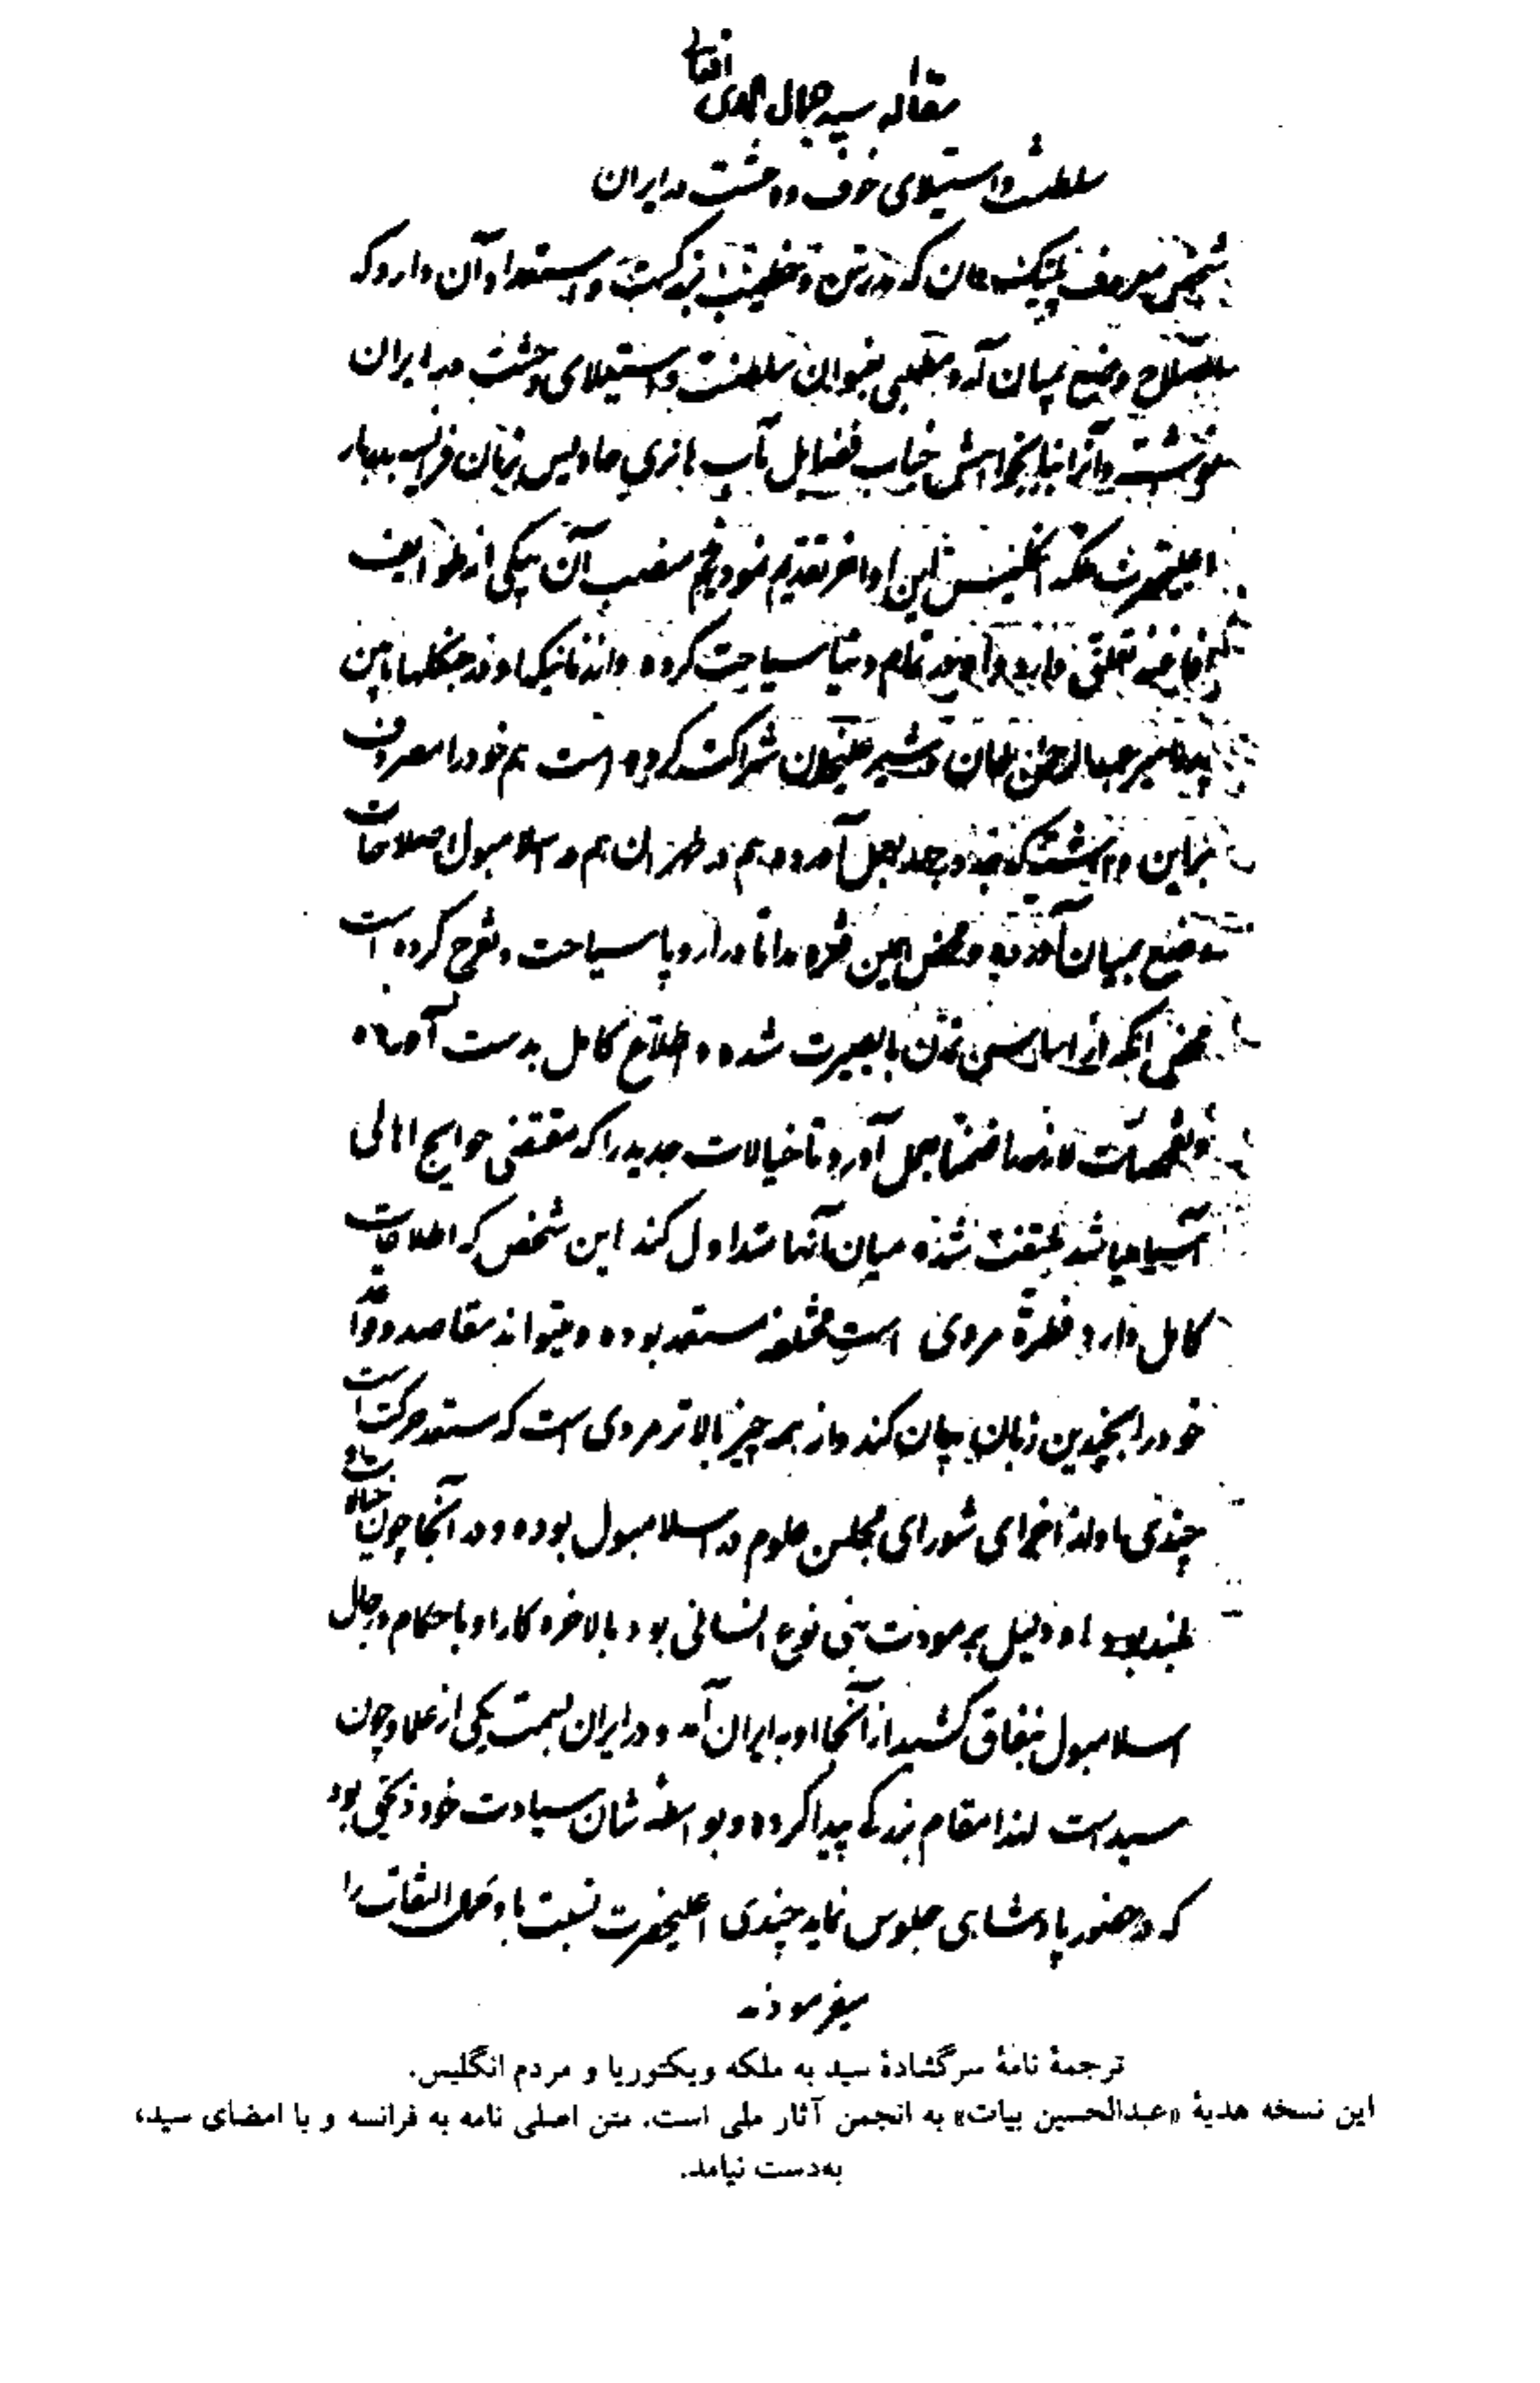 مقاله سید جمال الدین افغانی
سلطنت و استیلای خوف و وحشت در ایران
شخص معروف که در تن و بزرگست و استعداد آن دارد که
اصلاح وضع بمیان آرد مطلبی بعنوان سلطنت و استیلای وحشت در ایران
نوشته و آنرا بنا بخواهش جناب فضایل مآب بزبان فرانسه بدربار
اعلیحضرت ملکه انگلیس این اواخر تقدیم نمود منصب آن بیکی از طوایف
افاغنه تعلق دارد و او نیز تمام دنیا سیاحت کرده و در جنگلها بین
امیر عبدالرحمن خان و شیر علیخان شراکت کرده است هم خود را معروف
براین داشته که جد و جهد بعمل آورده هم در طهران هم در اسلامبول اصلاحات
وضع بمیان آورده و محض همین فقره در اروپا سیاحت و تفرج کرده است
محض اینکه از اساس تمدن با بصیرت شده و اطلاع کامل بدست آورده
و تفحصات لازمه را ضمنا بعمل آورد تا خیالات جدید را که مقتضی حوایج اهالی
آسیا باشد ملتفت شده میان آنها متداول کند این شخص که اطلاعات
کامل دارد فطرة مردی است مستعد بوده و میتواند مقاصد و
خود را بچندین زبان بیان کند و از همه چیز بالاتر مردی است که مستعد حرکت است
چندی ما و اجزای شورای مجلس علوم در اسلامبول بوده و در آنجا چون خیالات
بلند او دلیل بر مودت بنی نوع انسانی بود بالاخره کار او با حکام و رجال
اسلامبول بنفاق کشید از آنجا او به ایران آمد و در ایران بسمت یکی از علما و چون
سید است لهذا مقام بزرگی پیدا کرده و بواسطه شان سیادت خود ذیحق بود
که در حضور پادشاهی جلوس نماید چندی اعلیحضرت نسبت باو کمال التفات را
میفرمودند
ترجمهٔ نامهٔ سرگشادهٔ سید به ملکه ویکتوریا و مردم انگلیس.
این نسخه هدیهٔ «عبدالحسین بیات» به انجمن آثار ملی است. متن اصلی نامه به فرانسه و با امضای سید،
به‌دست نیامد.